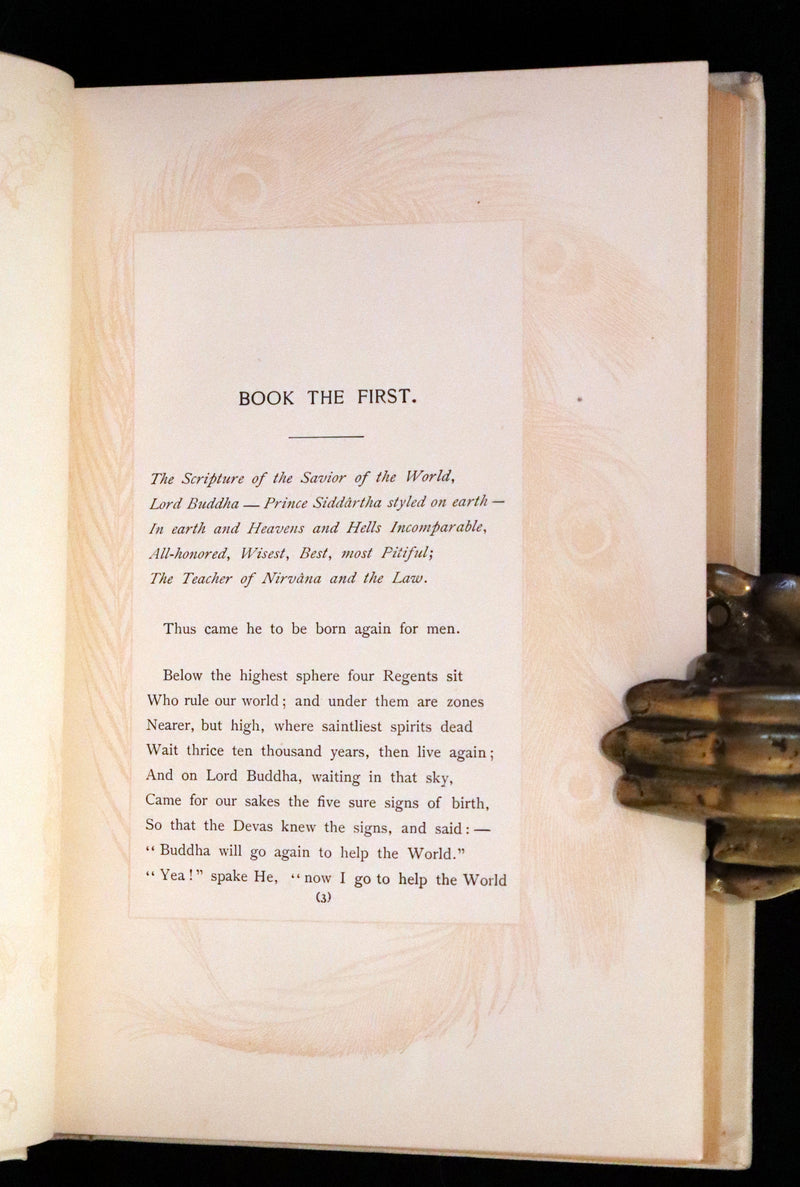 BOOK THE FIRST.
The Scripture of the Savior of the World,
Lord Buddha — Prince Siddârtha styled on earth —
In earth and Heavens and Hells Incomparable,
All-honored, Wisest, Best, most Pitiful;
The Teacher of Nirvâna and the Law.
Thus came he to be born again for men.
Below the highest sphere four Regents sit
Who rule our world; and under them are zones
Nearer, but high, where saintliest spirits dead
Wait thrice ten thousand years, then live again;
And on Lord Buddha, waiting in that sky,
Came for our sakes the five sure signs of birth,
So that the Devas knew the signs, and said: —
“Buddha will go again to help the World.”
“Yea!” spake He, “now I go to help the World
(3)